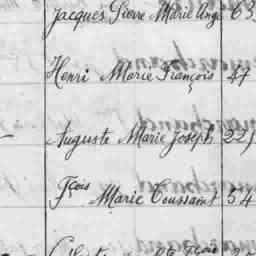 Jacques Pierre Marie Ange 63
Henri Marie François 47
Auguste Marie Joseph 22
Fçois Marie Toussaint 54